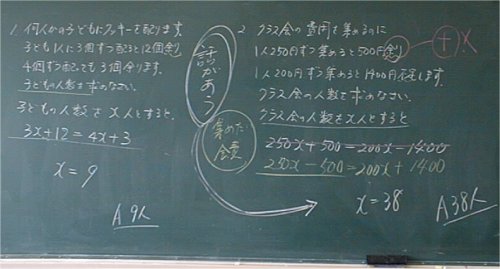 1. 何人かの子どもにクッキーを配ります。
子ども1人に3個ずつ配ると12個余り
4個ずつ配っても3個余ります。
子どもの人数を求めなさい。
子どもの人数をx人とすると、
3x+12=4x+3
x=9
A 9人
話があう
集めた会費
2. クラス会の費用を集めるのに
1人250円ずつ集めると500円余り
1人200円ずつ集めると1400円不足します。
クラス会の人数を求めなさい。
クラス会の人数をx人とすると
250x+500=200x-1400
250x-500=200x+1400
x=38
A 38人
+ X